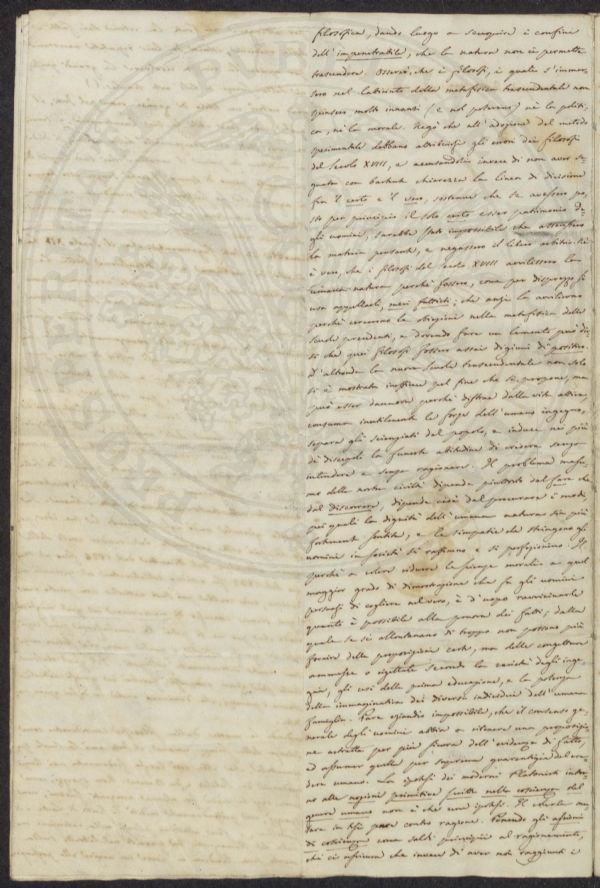 filosofica, dando luogo a scuoprire i confini
dell'impenetrabile, che la natura non ci permette
trascendere. Osservò, che i filosofi, i quali s'immer-
sero nel labirinto della metafisica trascendentale non
spinsero molto innanzi (e nol potevano) nè la politi-
ca, nè la morale. Negò che all'adozione del metodo
sperimentale debbano attribuirsi gli errori dei filosofi
del Secolo XVIII, e accusandoli invece di non aver se-
guita con bastante chiarezza la linea di divisione
fra il certo e il vero, sostenne che se avessero po-
sto per principio il solo certo essere patrimonio de-
gli uomini, sarebbe stato impossibile che
la materia pensante, e negassero il libero arbitrio. Nè
è vero, che i filosofi del Secolo XVIII avvilissero la
umana natura perchè fossero, come per disprezzo si
usa appellarli, meri fattisti; che anzi la avvilirono
perchè cercarono le obiezioni nella metafisica delle
Scuole precedenti, e dovendo fare un lamento può dir-
si che quei filosofi fossero assai digiuni di positivo.
D'altronde la nuova Scuola trascendentale non solo
si è mostrata pel fine che si propone, ma
può esser dannosa perchè distrae dalla vita attiva,
consuma inutilmente le forze dell'umano ingegno,
separa gli scienziati dal popolo, e induce nei più
de' discepoli la funesta abitudine di credere senza
intendere e senza ragionare. Il problema massi-
mo della nostra civiltà dipende piuttosto dal fare che
dal discorrere, dipende cioè dal procurare i modi,
pei quali la dignità dell'umana natura sia più
fortemente sentita, e le simpatie che stringono gli
uomini in società si raffinino e si perfezionino. Il
perchè a voler ridurre le scienze morali a quel
maggior grado di dimostrazione che fa gli uomini
persuasi di cogliere nel vero, è d'uopo ravvicinarle
quanto è possibile alla prova dei fatti; dalla
quale se si allontanano di troppo non possono più
fornire delle proposizioni certe, ma delle congetture
ammesse o rigettate secondo la varietà degli inge-
gni, gli usi della prima educazione, e la potenza
della immaginativa dei diversi individui dell'umana
famiglia. Pare eziandio impossibile, che il consenso ge-
nerale degli uomini abbia a ritenere una proposizio-
ne astratta per più sicura dell'evidenza di fatto,
ed assumer quella per suprema guarentigia del cre-
dere umano. La ipotesi dei moderni Platonisti intor-
no alle nozioni primitive scritte nella coscienza del
genere umano non è che una ipotesi. Il
in tesi pecca contro ragione. Ponendo gli aforismi
di coscienza come saldi principii al ragionamento,
chi ci assicura che invece di aver noi raggiunti i